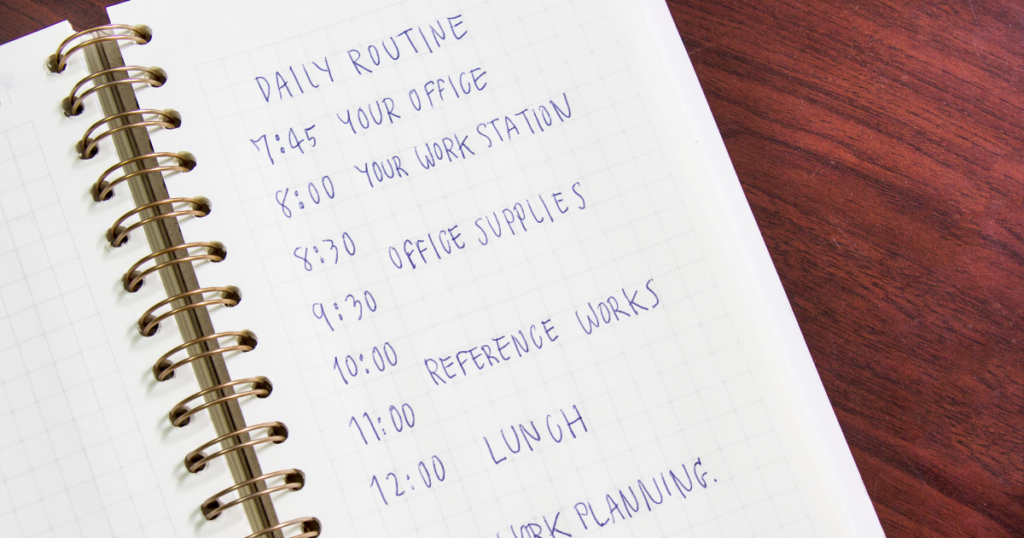 DAILY ROUTINE
7:45 YOUR OFFICE
8:00 YOUR WORK STATION
8:30 OFFICE SUPPLIES
9:30
10:00 REFERENCE WORKS
11:00
12:00 LUNCH
WORK PLANNING.